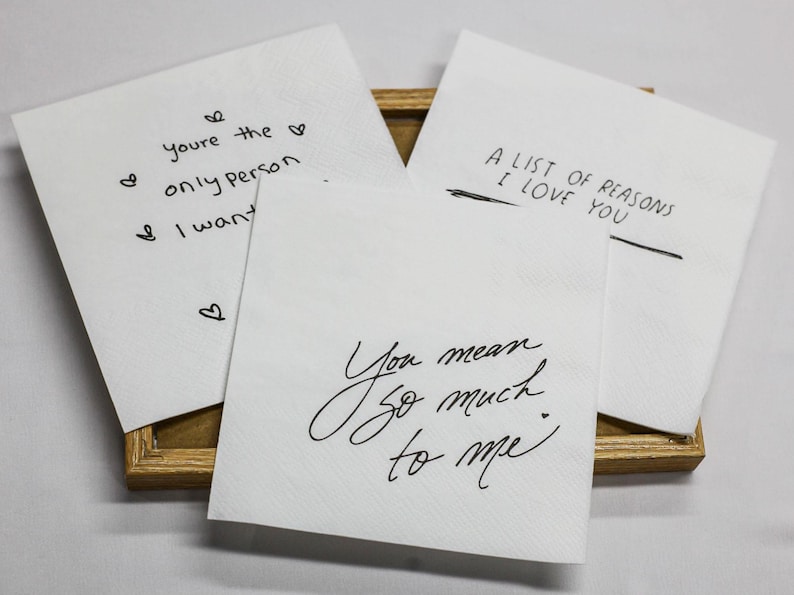 youre the
only person
I want
A LIST OF REASONS
I LOVE YOU
You mean
so much
to me